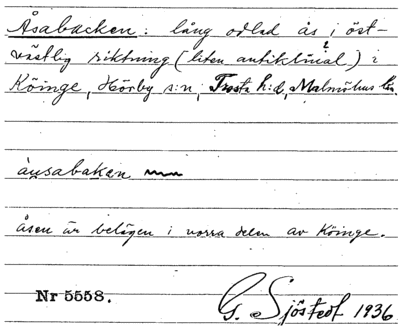 Åsabacken: lång odlad ås i öst-
västlig riktning (liten antiklinal) i
Köinge, Hörby s:n, Frosta h:d, Malmöhus län.
åsen är belägen i norra delen av Köinge.
Nr 5558.
G. Sjöstedt 1936